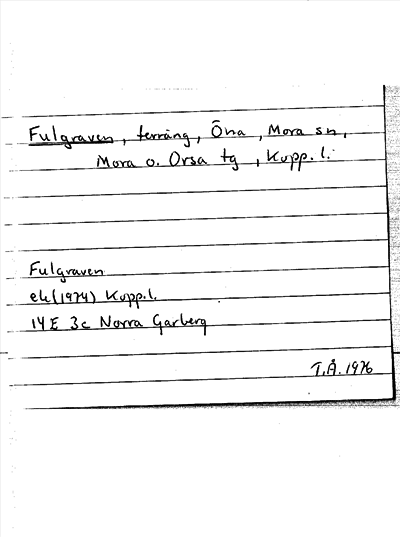 Fulgraven, terräng, Öna, Mora sn,
Mora o. Orsa tg, Kopp. l.
Fulgraven
ek (1974) Kopp. l.
14E 3c Norra Garberg
T.Å. 1976